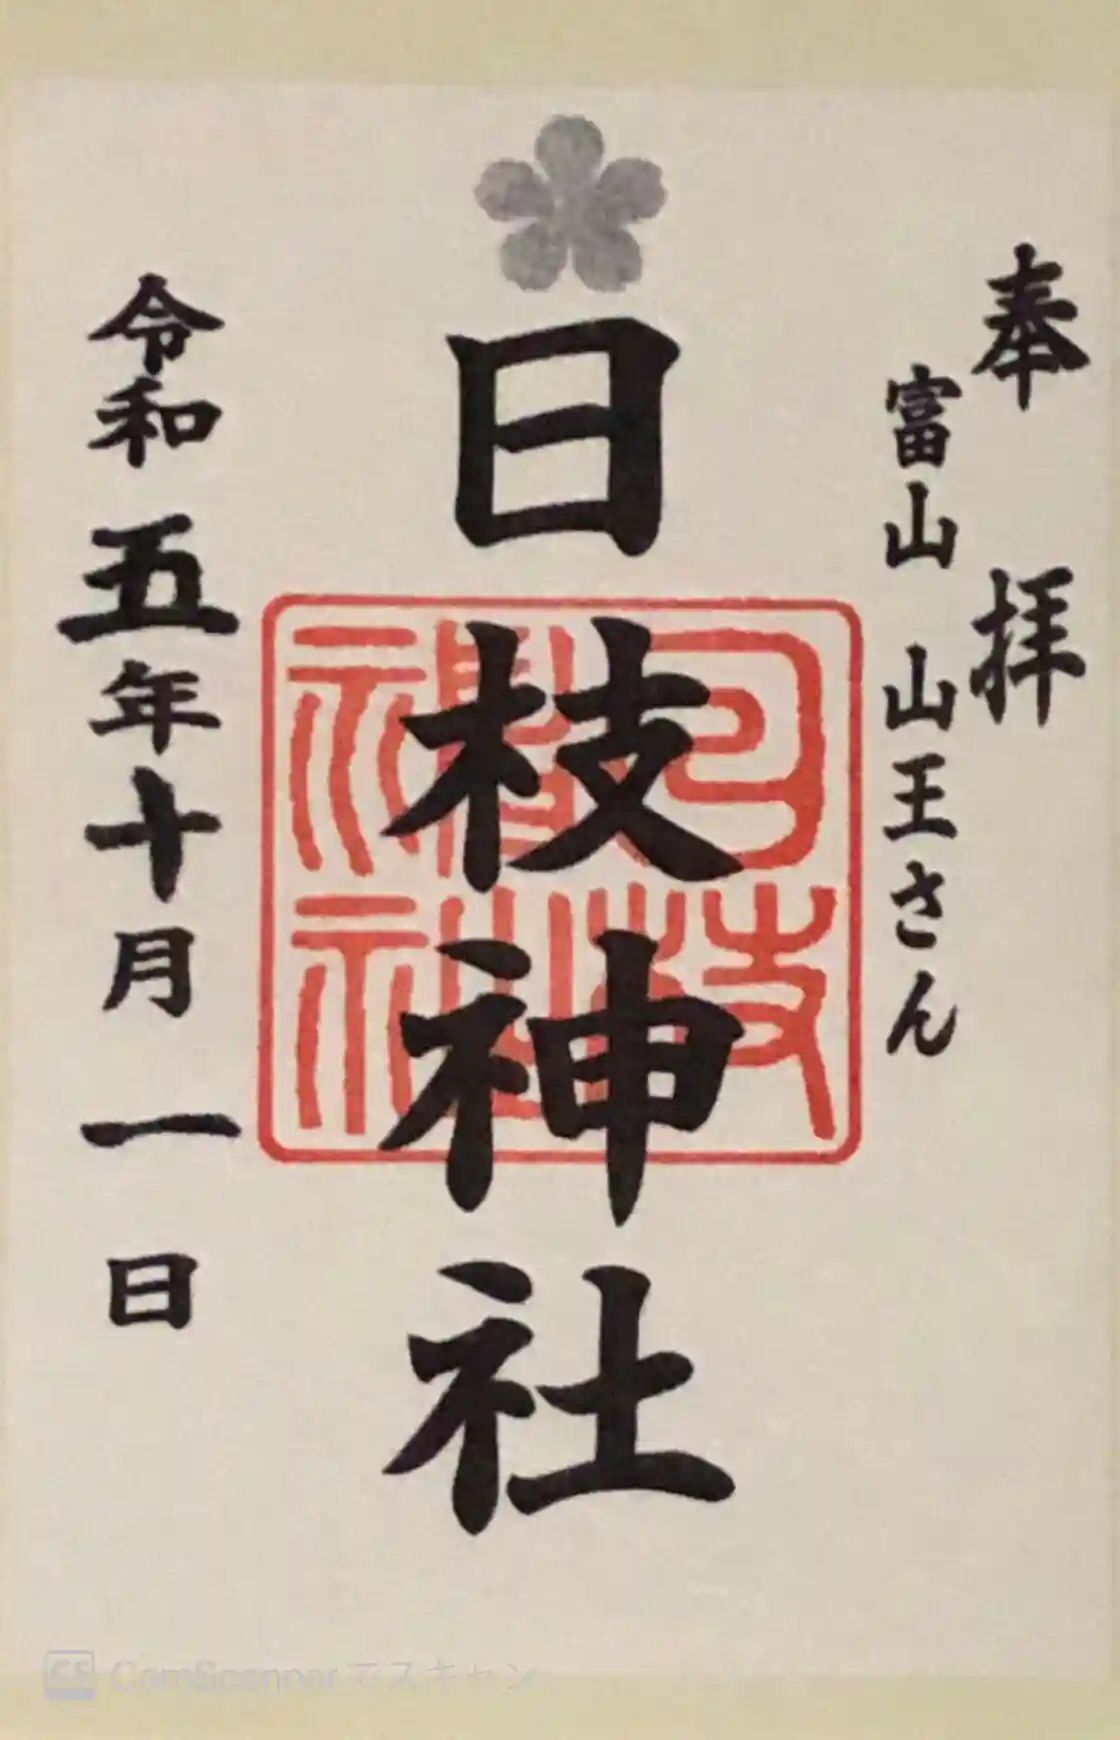 奉拝
富山 山王さん
日枝神社
日枝神社
令和五年十月一日
CS CamScannerでスキャン